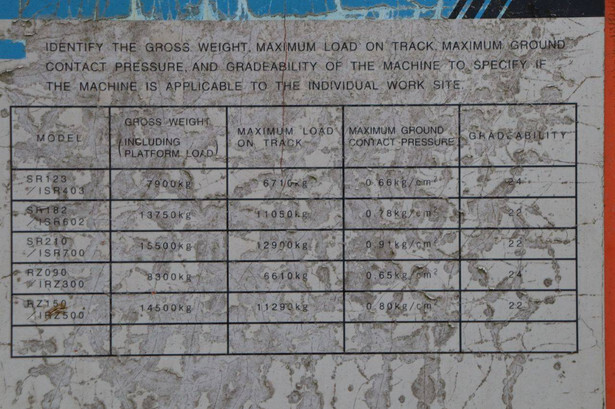 IDENTIFY THE GROSS WEIGHT, MAXIMUM LOAD ON TRACK, MAXIMUM GROUND
CONTACT PRESSURE, AND GRADEABILITY OF THE MACHINE TO SPECIFY IF
THE MACHINE IS APPLICABLE TO THE INDIVIDUAL WORK SITE.
MODEL GROSS WEIGHT (INCLUDING PLATFORM LOAD) MAXIMUM LOAD ON TRACK MAXIMUM GROUND CONTACT PRESSURE GRADEABILITY
SR123 /ISR403 7900kg 6710kg 0.66kg/cm² 24°
SR182 /ISR602 13750kg 11050kg 0.78kg/cm² 22°
SR210 /ISR700 15500kg 12900kg 0.91kg/cm² 22°
RZ090 /IRZ300 8300kg 6610kg 0.65kg/cm² 24°
RZ150 /IRZ500 14500kg 11290kg 0.80kg/cm² 22°